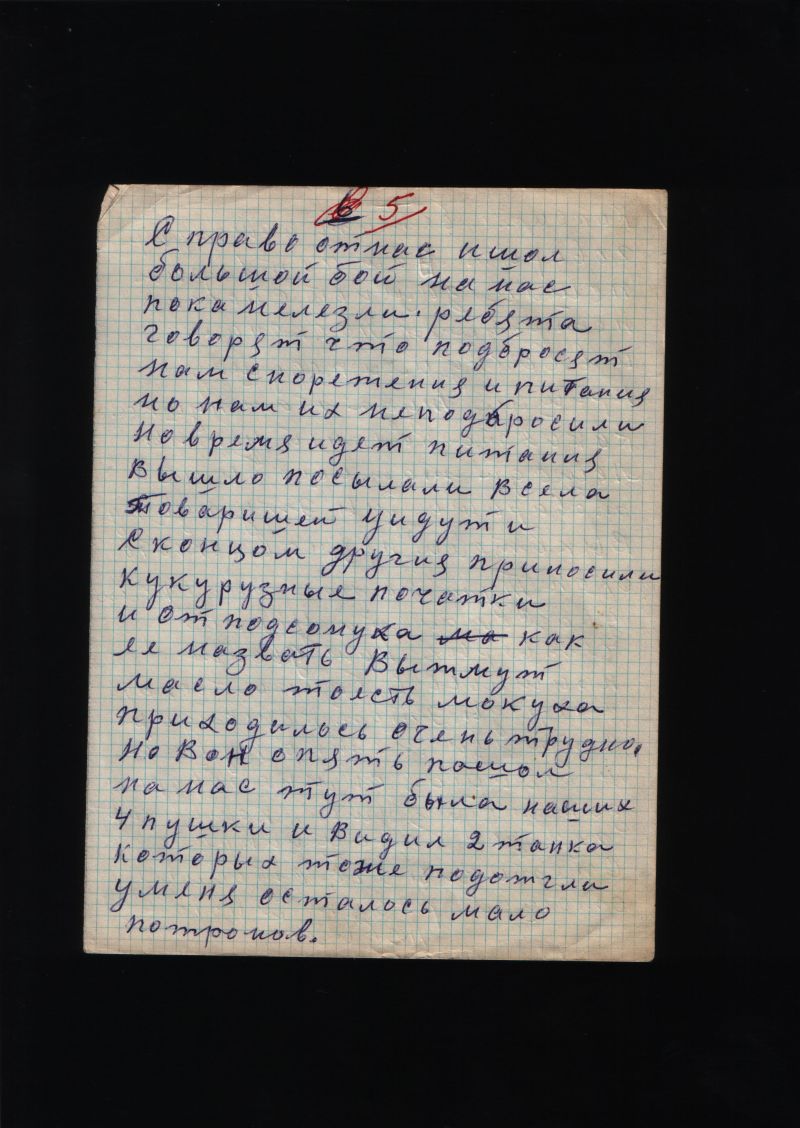 5
С право отнас ишол
большой бой на нас
пока нелезли. ребята
говорят что подбросят
нам снорежения и питания
но нам их неподбросили
Но время идет питания
вышло посылали в села
товаришей уидут и
с концом другия приносили
кукурузные початки
и от подсомуха как
ее назвать выжмут
масло тоесть мокуха
приходилось очень трудно.
Но вон опять пошол
на нас тут была наших
4 пушки и видил 2 танка
которых тоже подожгли
уменя осталось мало
потронов.